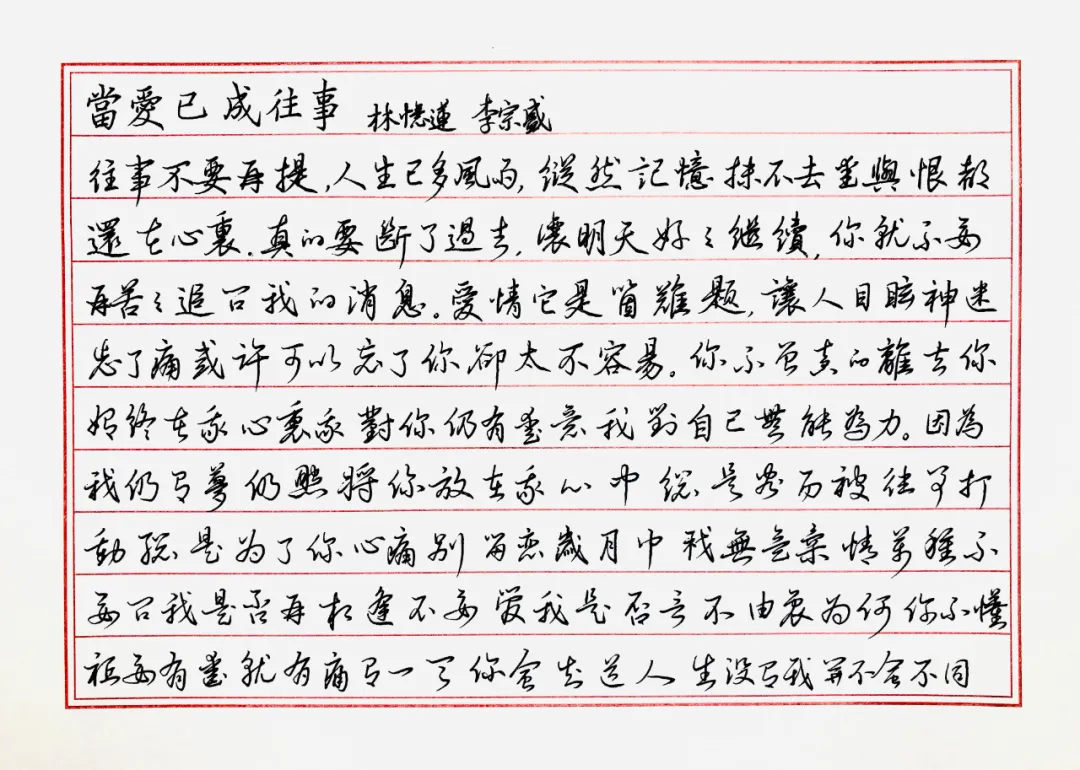 當愛已成往事 林憶蓮 李宗盛
往事不要再提,人生已多風雨,縱然記憶抹不去愛與恨都
還在心裏.真的要斷了過去,讓明天好〻繼續,你就不要
再苦〻追問我的消息。愛情它是個難題,讓人目眩神迷
忘了痛或許可以忘了你卻太不容易。你不曾真的離去你
始終在我心裏我對你仍有愛意我對自己無能為力。因為
我仍有夢仍然將你放在我心中總是容易被往事打
動總是為了你心痛別留戀歲月中我無意柔情萬種不
要問我是否再相逢不要管我是否言不由衷為何你不懂
祇要有愛就有痛有一天你會知道人生沒有我並不會不同